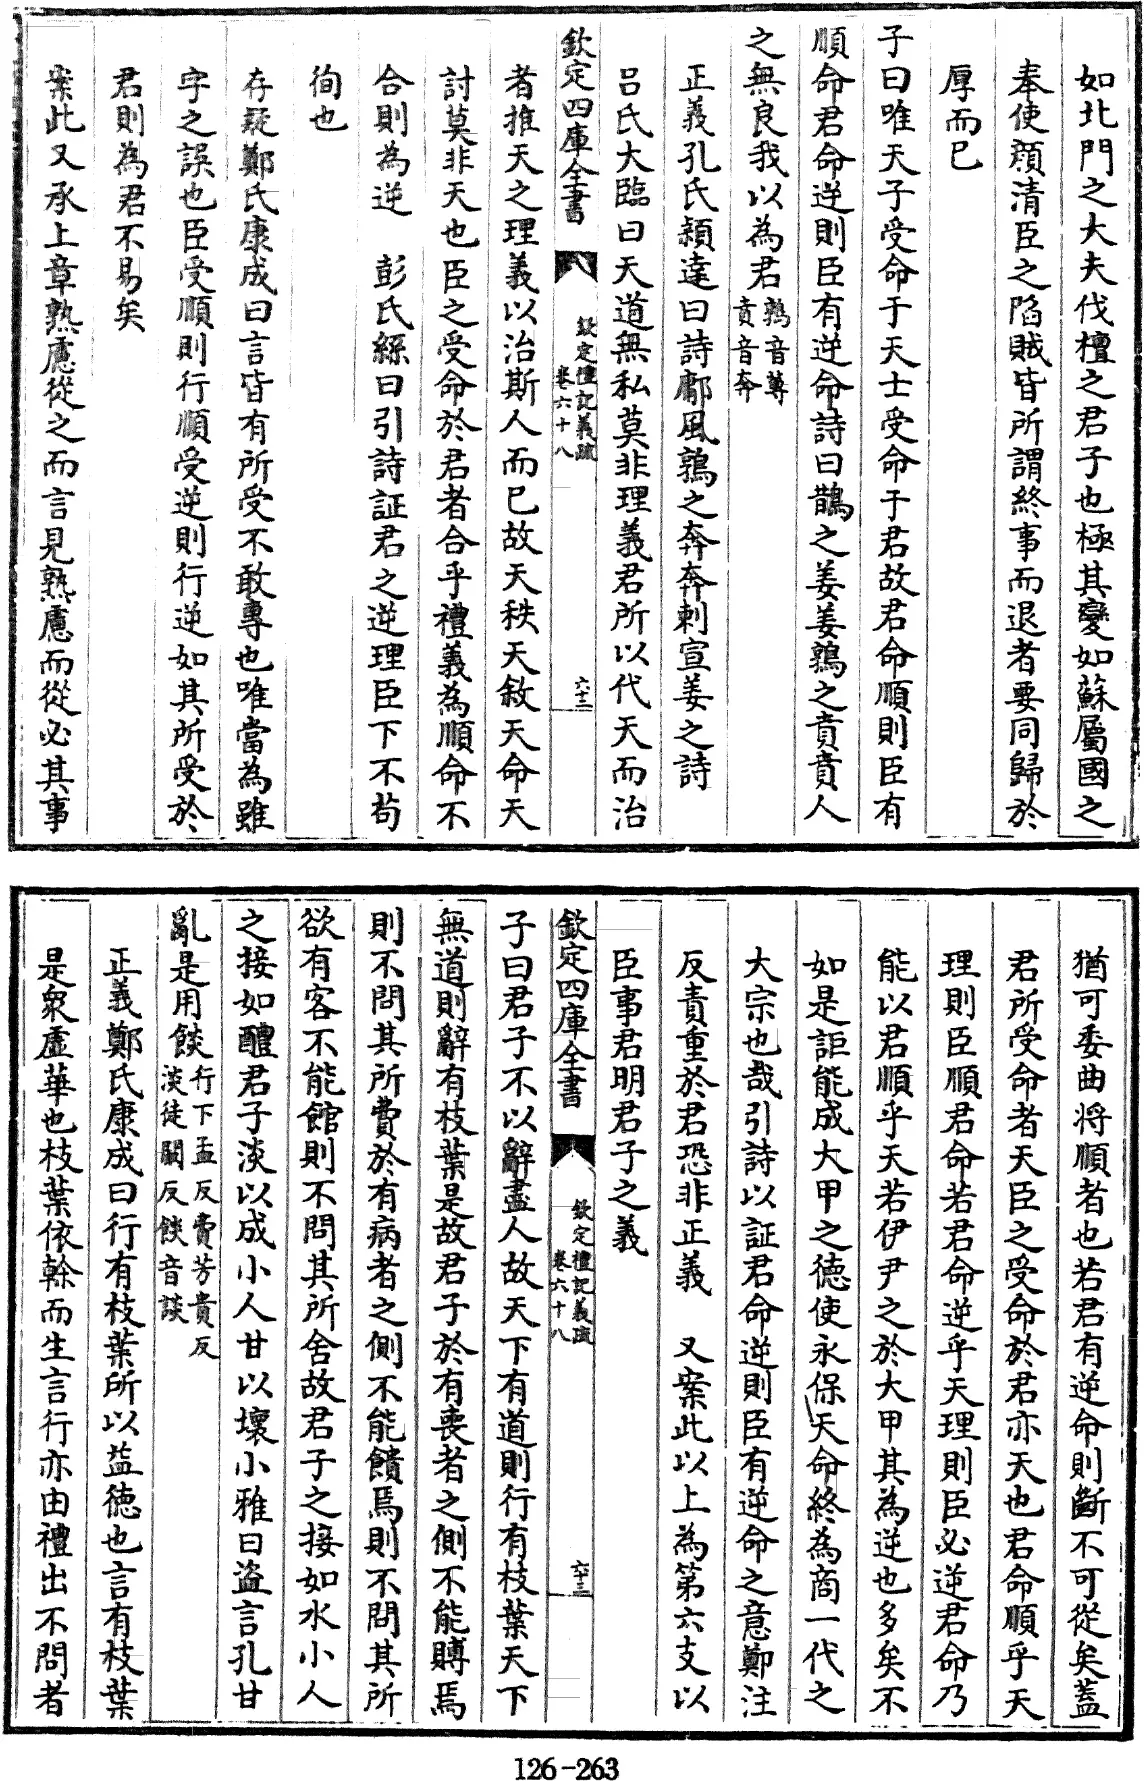 如北門之大夫伐檀之君子也極其變如蘇屬國之
奉使顔清臣之陷賊皆所謂終事而退者要同歸於
厚而已
子曰唯天子受命于天士受命于君故君命順則臣有
順命君命逆則臣有逆命詩曰鵲之姜姜鶉之賁賁人
之無良我以為君鶉音蓴
賁音奔
正義孔氏穎達曰詩鄘風鶉之奔奔刺宣姜之詩
呂氏大臨曰天道無私莫非理義君所以代天而治
欽定四庫全書
欽定禮記義疏
卷六十八
六十三
者推天之理義以治斯人而已故天秩天敘天命天
討莫非天也臣之受命於君者合乎禮義為順命不
合則為逆　彭氏絲曰引詩証君之逆理臣下不苟
徇也
存疑鄭氏康成曰言皆有所受不敢專也唯當為雖
字之誤也臣受順則行順受逆則行逆如其所受於
君則為君不易矣
案此又承上章熟慮從之而言見熟慮而從必其事
猶可委曲將順者也若君有逆命則斷不可從矣蓋
君所受命者天臣之受命於君亦天也君命順乎天
理則臣順君命若君命逆乎天理則臣必逆君命乃
能以君順乎天若伊尹之於大甲其為逆也多矣不
如是詎能成大甲之德使永保天命終為商一代之
大宗也哉引詩以証君命逆則臣有逆命之意鄭注
反責重於君恐非正義　又案此以上為第六支以
臣事君明君子之義
欽定四庫全書
欽定禮記義疏
卷六十八
六十三
子曰君子不以辭盡人故天下有道則行有枝葉天下
無道則辭有枝葉是故君子於有喪者之側不能賻焉
則不問其所費於有病者之側不能饋焉則不問其所
欲有客不能館則不問其所舍故君子之接如水小人
之接如醴君子淡以成小人甘以壞小雅曰盜言孔甘
亂是用餤行下孟反費芳貴反
淡徒闞反餤音談
正義鄭氏康成曰行有枝葉所以益德也言有枝葉
是衆虛華也枝葉依榦而生言行亦由禮出不問者
126-263